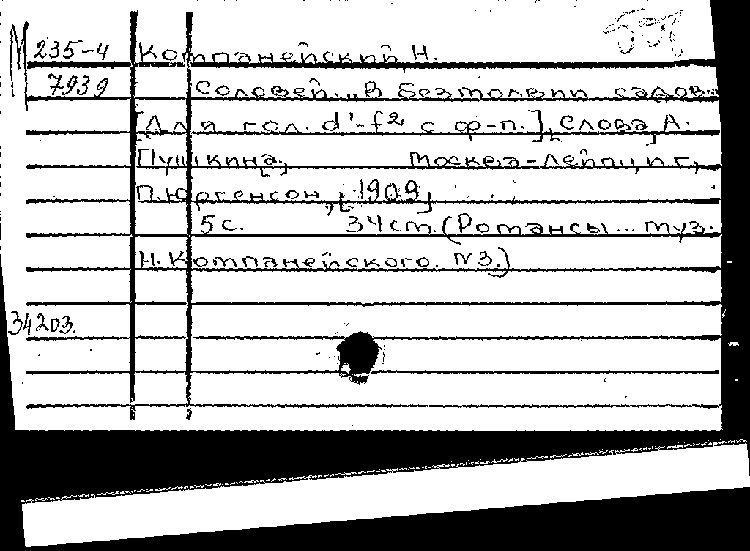 М 235-4 Компанейский, Н.
7939 Соловей. „В безмолвии садов..
[Для гол. d¹-f² с ф-п.], Слова, А.
Пушкина, Москва-Лейпциг,
П. Юргенсон, [1909]
5 с. 34 см. (Романсы... муз.
Н. Компанейского. N3.)
34203.